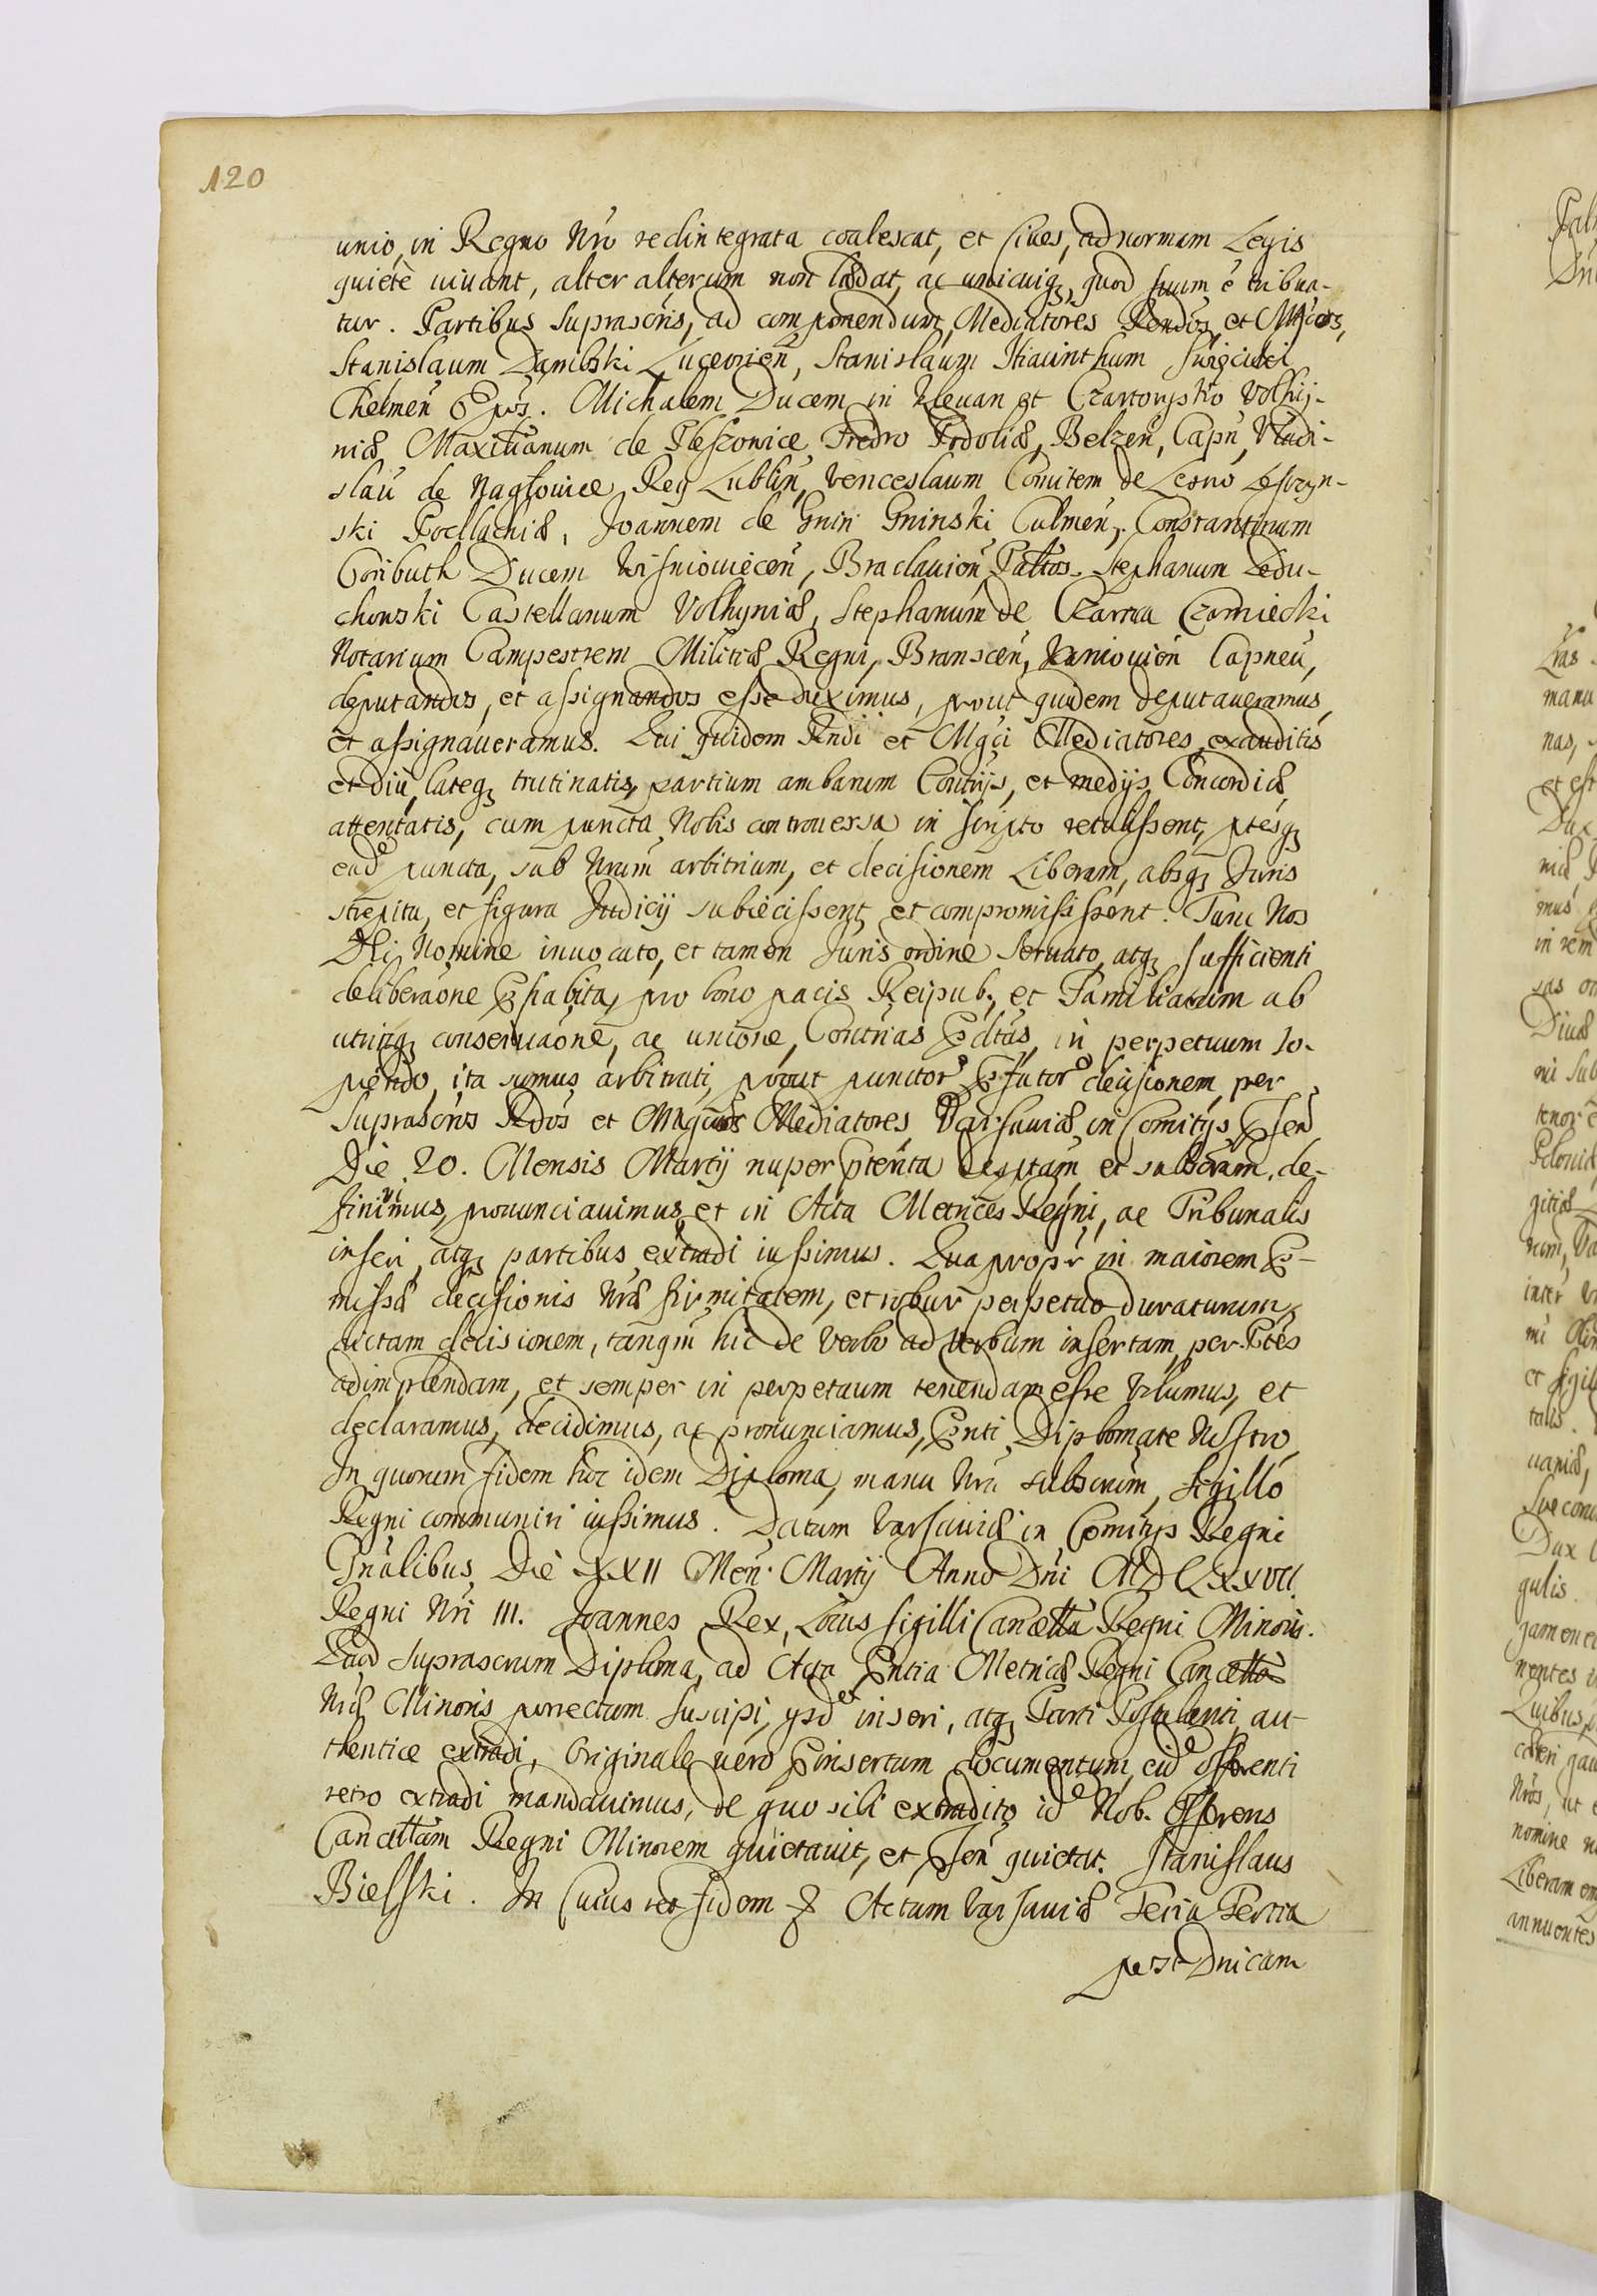 120
unio, in Regno Nro redintegrata coalescat, et Cives, ad normam Legis
quietè vivant, alter alterum non lædat, ac unicuiq, quod suum è tribua-
tur. Partibus suprascris, ad componendum, Mediatores Rendos, et Mgcos,
Stanislaum Dąmbski Luceorien, Stanislaum Hiacinthum Swięcicki
Chelmen Epos. Michalem Ducem in Klevan et Czartorysko Volhij-
niæ, Maximianum de Pleszowice Fredro Podoliæ, Belzen, Capn, Vladi-
slau de Nagłowice Rey Lublin, Venceslaum Comitem de Lesno Leszczyn-
ski Podlachiæ, Joannem de Gnin Gninski Culmen, Constantinum
Coributh Ducem Wisniowiecen, Braclauien Pallos. Stephanum Ledu-
chowski Castellanum Volhyniæ, Stephanum de Czarnca Czarniecki
Notarium Campestrem Militiæ Regni, Branscen, Kaniouien Capneu,
deputandos, et assignandos esse duximus, prout quidem deputaveramus,
et assignaveramus. Qui quidem Rndi et Mgci Mediatores, exauditis
et diù, lateq trutinatis, partium ambarum Contrijs, et medijs, Concordiæ
attentatis, cum puncta Nobis controversa in scripto retulissent, ptesq
ead puncta, sub Nrum arbitrium, et decisionem Liberam, absq Juris
strepitu, et figura Judicij subiecissent et compromisissent. Tunc Nos
DEi Nomine invocato, et tamen Juris ordine servato, atq sufficienti
deliberaone Phabita, pro bono pacis Reipub, et Familiarum ab
utrinq conservaone, ac unione, Contrias Pdtas, in perpetuum so-
piendo, ita sumus arbitrati, prout punctor Pfator decisionem, per
Suprascros Rdos et Magcos Mediatores Varsauiæ, in Comitijs Psen
Die 20. Mensis Martij nuper ptenta et subscram, de-
finivimus, pronunciavimus, et in Acta Metrices Regni, ac Tribunalis
inseri, atq partibus extradi iussimus. Qua propr in maiorem P-
missæ decisionis Nræ firmitatem, et robur perpetuo duraturum,
dictam decisionem, tanqm hic de verbo ad verbum insertam, per Ptes
adimplendam, et semper in perpetuum tenendam esse Volumus, et
declaramus, decidimus, ac pronunciamus, Pnti Diplomate Nostro,
In quorum fidem hoc idem Diploma, manu Nra subscrum, Sigillo
Regni communiri iussimus. Datum Varsaviæ in Comitijs Regni
Gnalibus Die XXII Men. Martij Anno Dni MDCLXXVII.
Regni Nri III. Joannes Rex, Locus Sigilli Cancellæ Regni Minoris.
Quod suprascrum Diploma, ad Acta Pntia Metricæ Regni Cancella
Nræ Minoris porrectum suscipi, ysd inseri, atq Parti Postulanti, au-
thentice extradi, Originale vero Pinsertum documentum, eid offerenti
retro extradi mandavimus, de quo sibi extradito id Nob. Offerens
Cancellam Regni Minorem quietavit, et Psen quietat. Stanislaus
Bielski. In Cuius rei fidem & Actum Varsauiæ Feria Tertia
post Dnicam